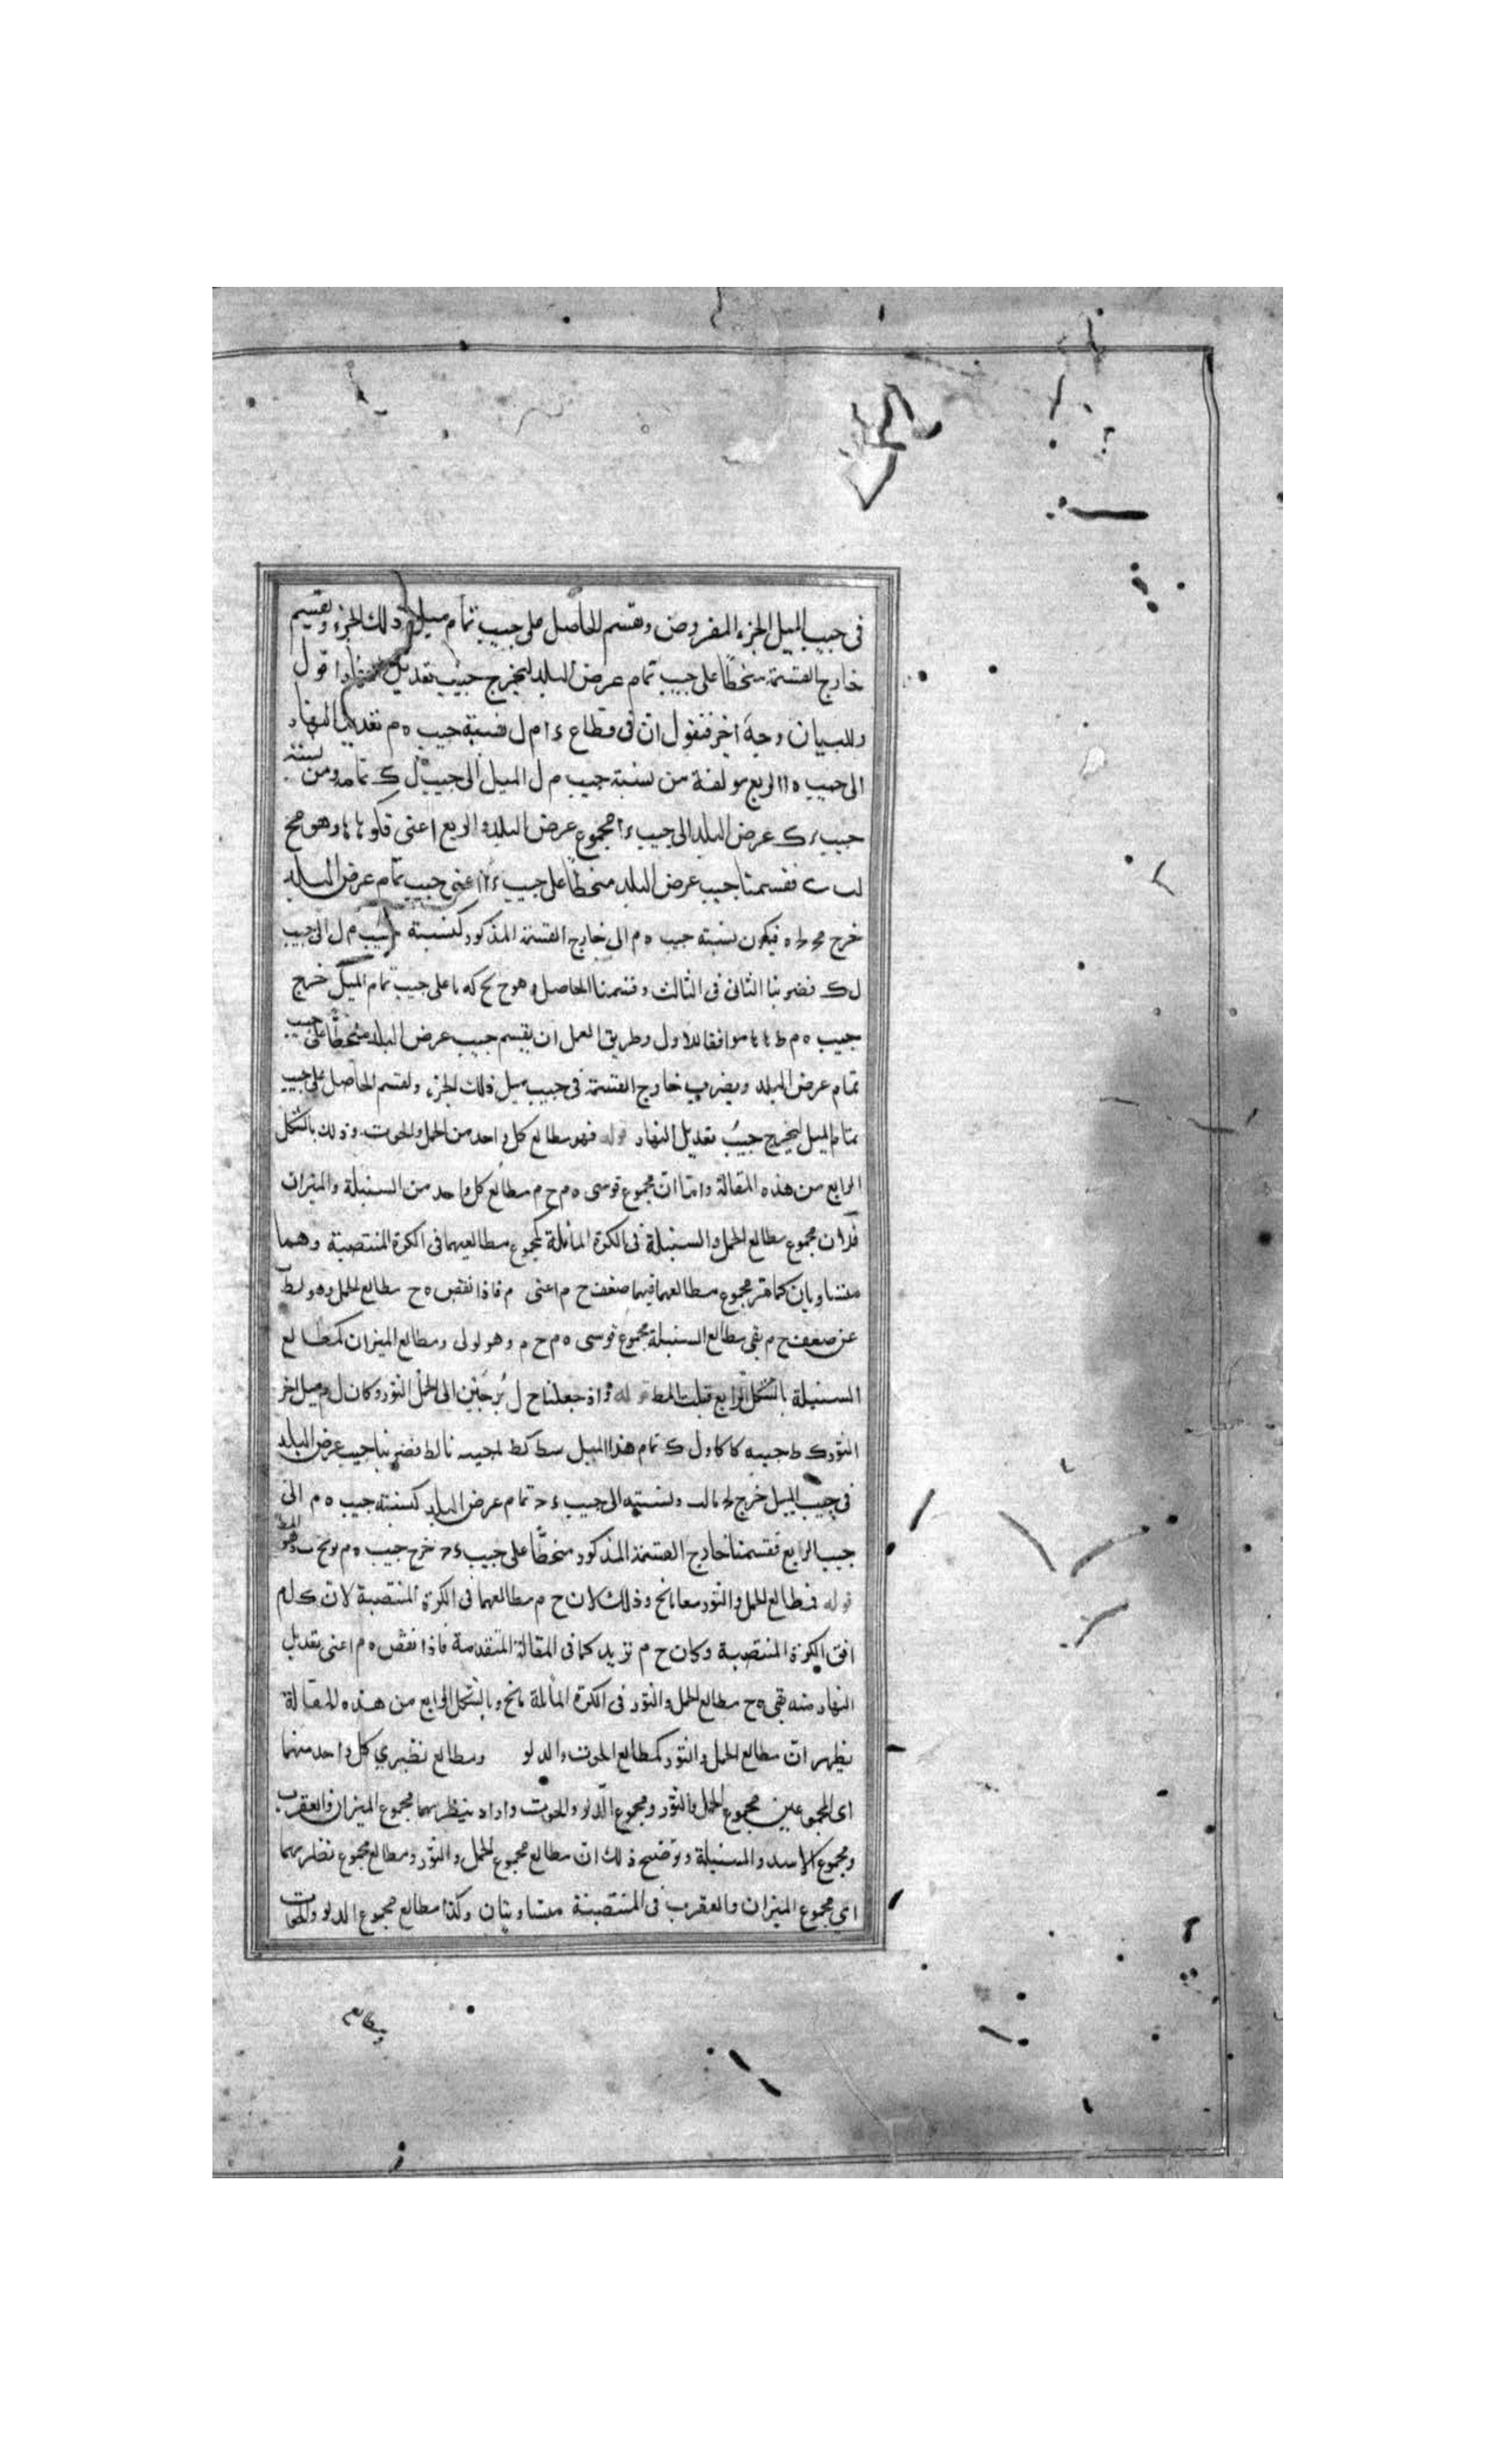 في جيب الميل الجزء المفروض ونقسم الحاصل على جيب تمام ميل ذلك الجزء ونقسم
خارج القسمة منحطا على جيب تمام عرض البلد ليخرج جيب تعديل اقول
وللبيان وجه اخر فنقول ان في قطاع ء ا م ل فنسبة جيب ه م تعديل النهار
الى جيب ه ا الربع مولفة من نسبة جيب م ل الميل الى جيب ل ك تمامه ومن نسبة
جيب ء ك عرض البلد الى جيب ء ا مجموع عرض البلد والربع اعنى وهو مح
فقسمنا جيب عرض البلد منحطا على جيب ء ا اعنى جيب تمام عرض البلد
خرج فيكون نسبة جيب ه م الى خارج القسمة المذكور كنسبة جيب م ل الى جيب
ل ك فضربنا الثانى فى الثالث وقسمنا الحاصل وهو على جيب تمام الميل خرج
جيب ه م موافقا للاول وطريق العمل ان يقسم جيب عرض البلد منحطا على جيب
تمام عرض البلد ويضرب خارج القسمة فى جيب ميل ذلك الجزء ونقسم الحاصل على جيب
تمام الميل ليخرج جيب تعديل النهار قوله فهو مطالع كل واحد من الحمل والحوت وذلك بالشكل
الرابع من هذه المقالة واما ان مجموع قوسى ه م ح م مطالع كل واحد من السنبلة والميزان
فلان مجموع مطالع الحمل والسنبلة فى الكرة المائلة كمجموع مطالعيهما فى الكرة المنتصبة وهما
متساويان كما مر مجموع مطالعهما فيهما ضعف ح م اعنى م فاذا نقص ه ح مطالع الحمل وهو لط
عن ضعف ح م بقى مطالع السنبلة مجموع قوسى ه م ح م وهو لولى ومطالع الميزان كمطالع
السنبلة بالشكل الرابع قوله واذ جعلنا ح ل برجين الى الحمل الثور وكان ل م ميل اخر
الثور ك ط جيبه كا كا ول ك تمام هذا الميل سط كط جيبه فضربنا جيب عرض البلد
فى جيب الميل خرج ونسبته الى جيب ء ح تمام عرض البلد كنسبة جيب ه م الى
جيب الرابع فقسمنا خارج القسمة المذكور منحطا على جيب ء ح خرج جيب ه م وهو المط
قوله فمطالع الحمل والثور معا نح وذلك لان ح م مطالعهما فى الكرة المنتصبة لان ك ل م
افق الكرة المنتصبة وكان ح م نز يد كما فى المقالة المتقدمة فاذا نقص ه م اعنى تعديل
النهار منه بقى ه ح مطالع الحمل والثور فى الكرة المائلة نح وبالشكل الرابع من هذه المقالة
يظهر ان مطالع الحمل والثور كمطالع الحوت والدلو ومطالع نظيري كل واحد منهما
اى المجموعين مجموع الحمل والثور ومجموع الدلو والحوت واراد بنظيريهما مجموع الميزان والعقرب
ومجموع الاسد والسنبلة وتوضيح ذلك ان مطالع مجموع الحمل والثور ومطالع مجموع نظيريهما
اى مجموع الميزان والعقرب فى المنتصبة متساويتان وكذا مطالع مجموع الدلو والحوت
ومطالع